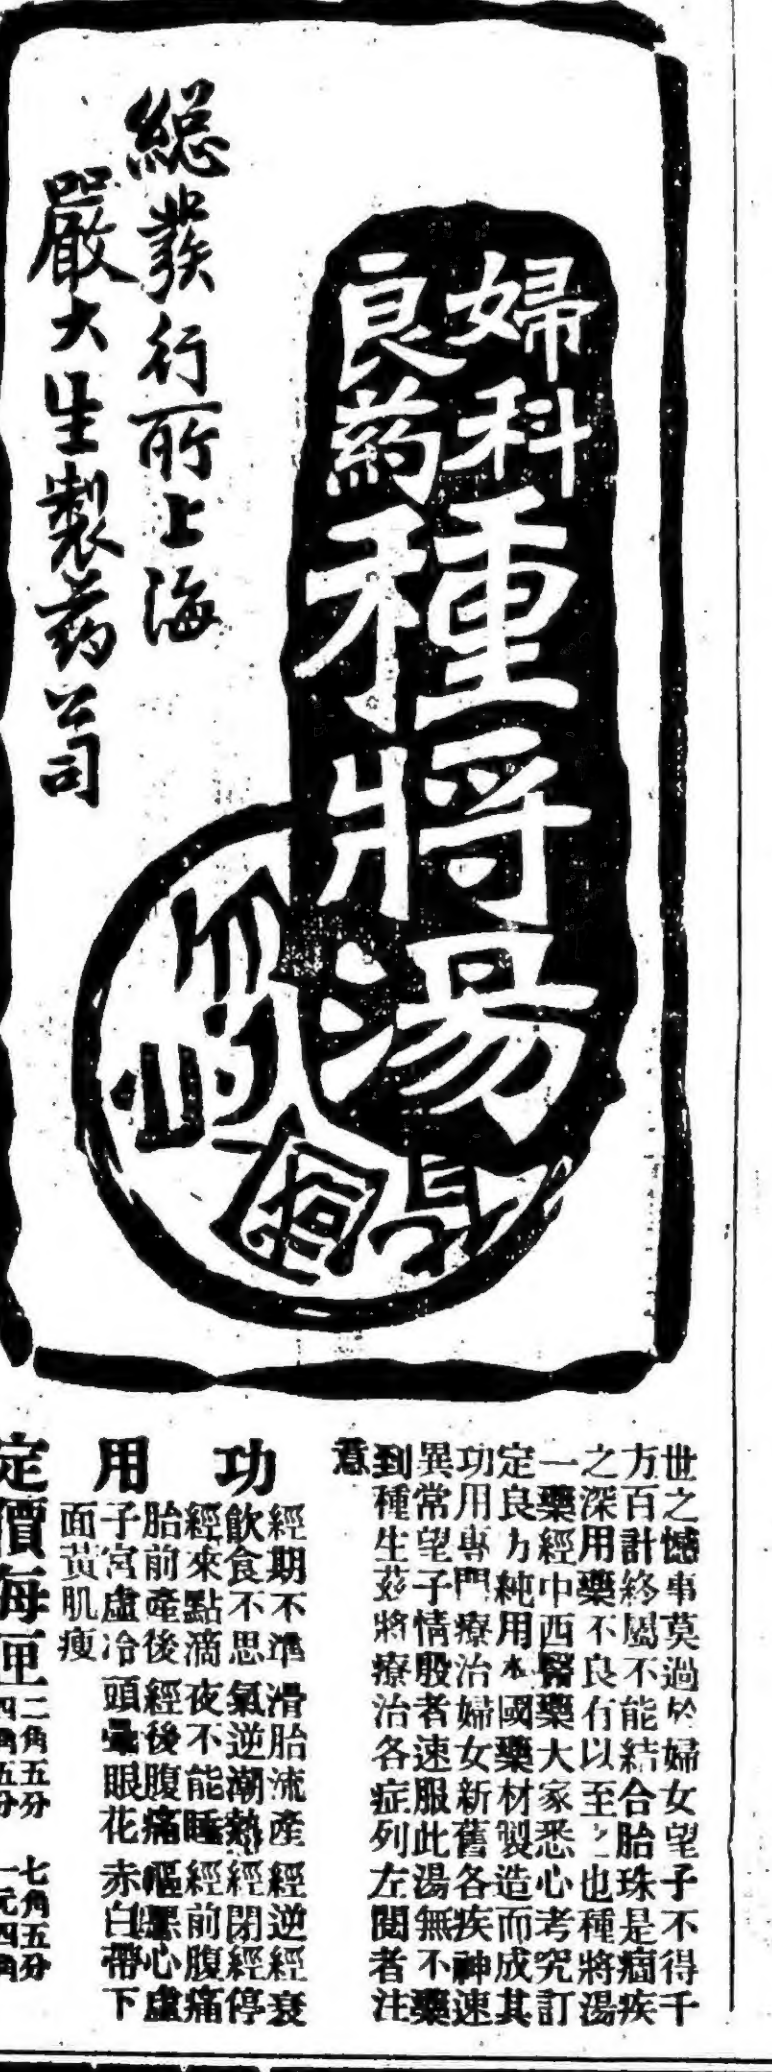 婦科
良药
種將湯
総發行所上海
嚴大生製药公司
世之憾事莫過於婦女望子不得千
方百計終屬不能結合胎珠是痼疾
之深用藥不良有以至之也種將湯
一藥經中西醫藥大家悉心考究訂
定良方純用本國藥材製造而成其
功用專門療治婦女新舊各疾神速
異常望子情殷者速服此湯無不藥
到種生茲將療治各症列左閱者注
意
功用
經期不準 滑胎流產 經逆經衰
飲食不思 氣逆潮熱 經閉經停
經來點滴 夜不能睡 經前腹痛
胎前產後 經後腹痛 嘔心虛
子宮虛冷 頭暈眼花 赤白帶下
面黃肌瘦
定價每匣
二角五分 七角五分
四角五分 一元四角